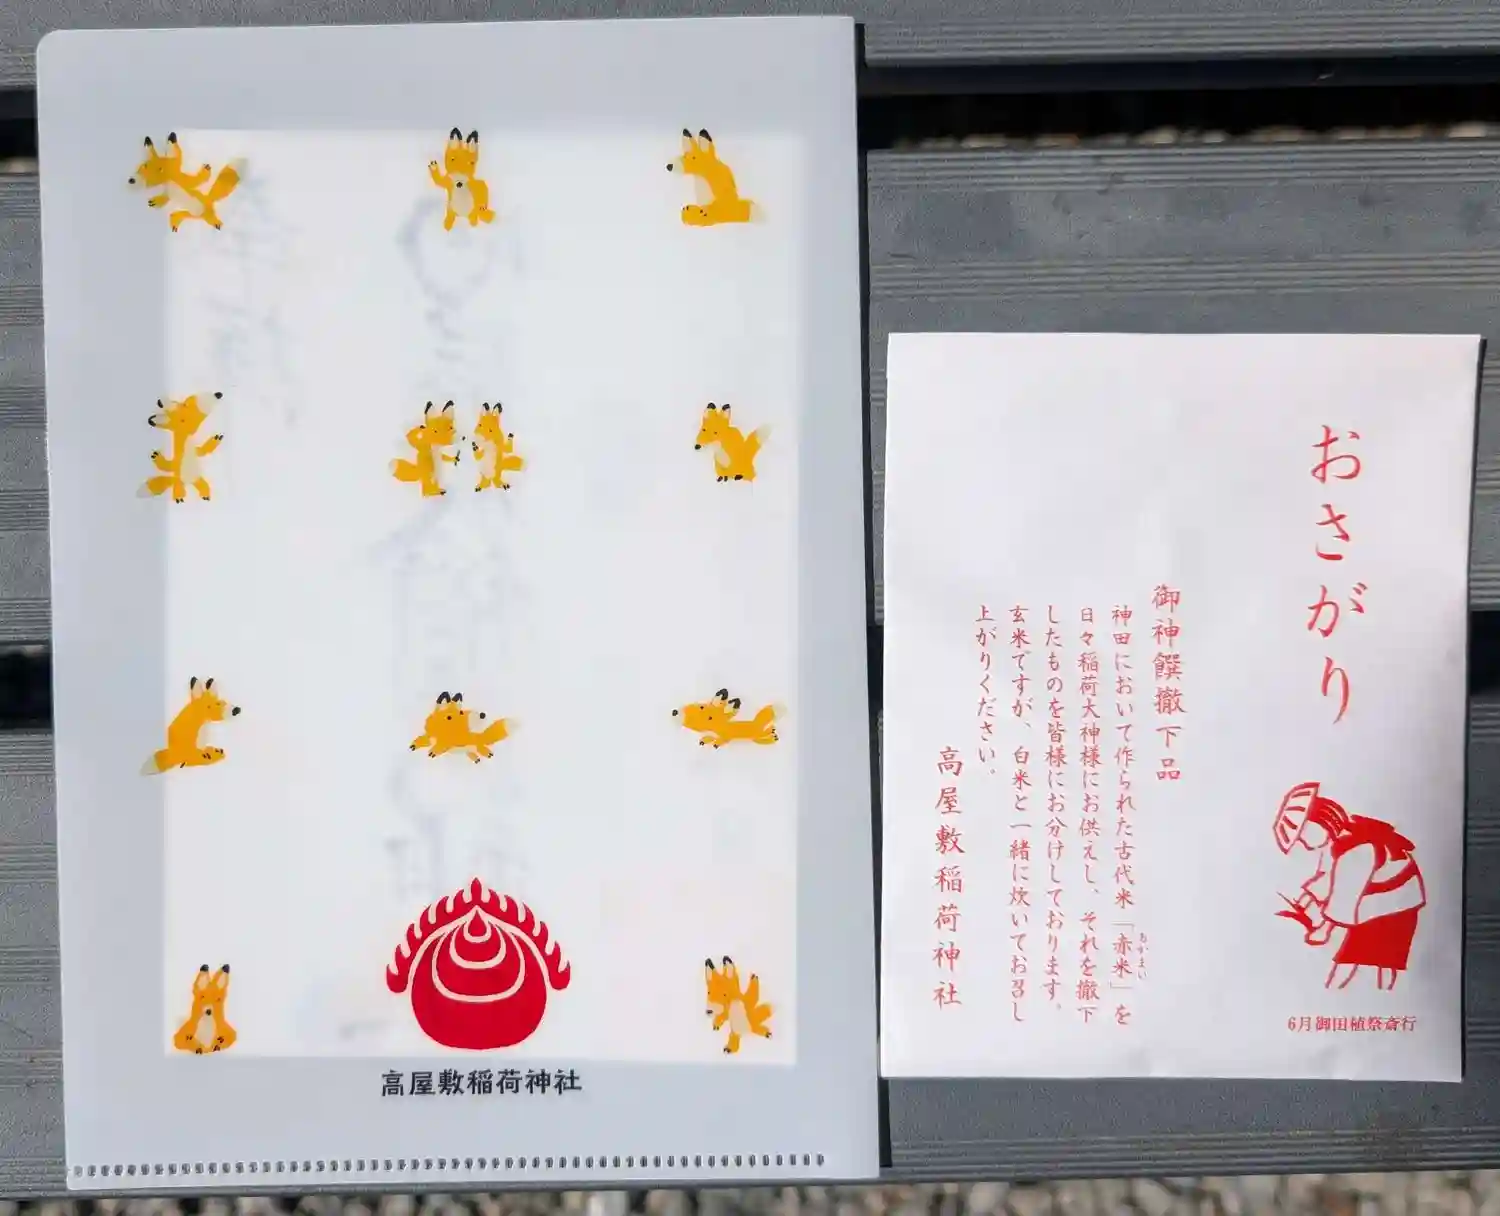 高屋敷稲荷神社
おさがり
御神饌撤下品
神田において作られた古代米「赤米」を
あかまい
日々稲荷大神様にお供えし、それを撤下
したものを皆様にお分けしております。
玄米ですが、白米と一緒に炊いてお召し
上がりください。
高屋敷稲荷神社
6月御田植祭斎行